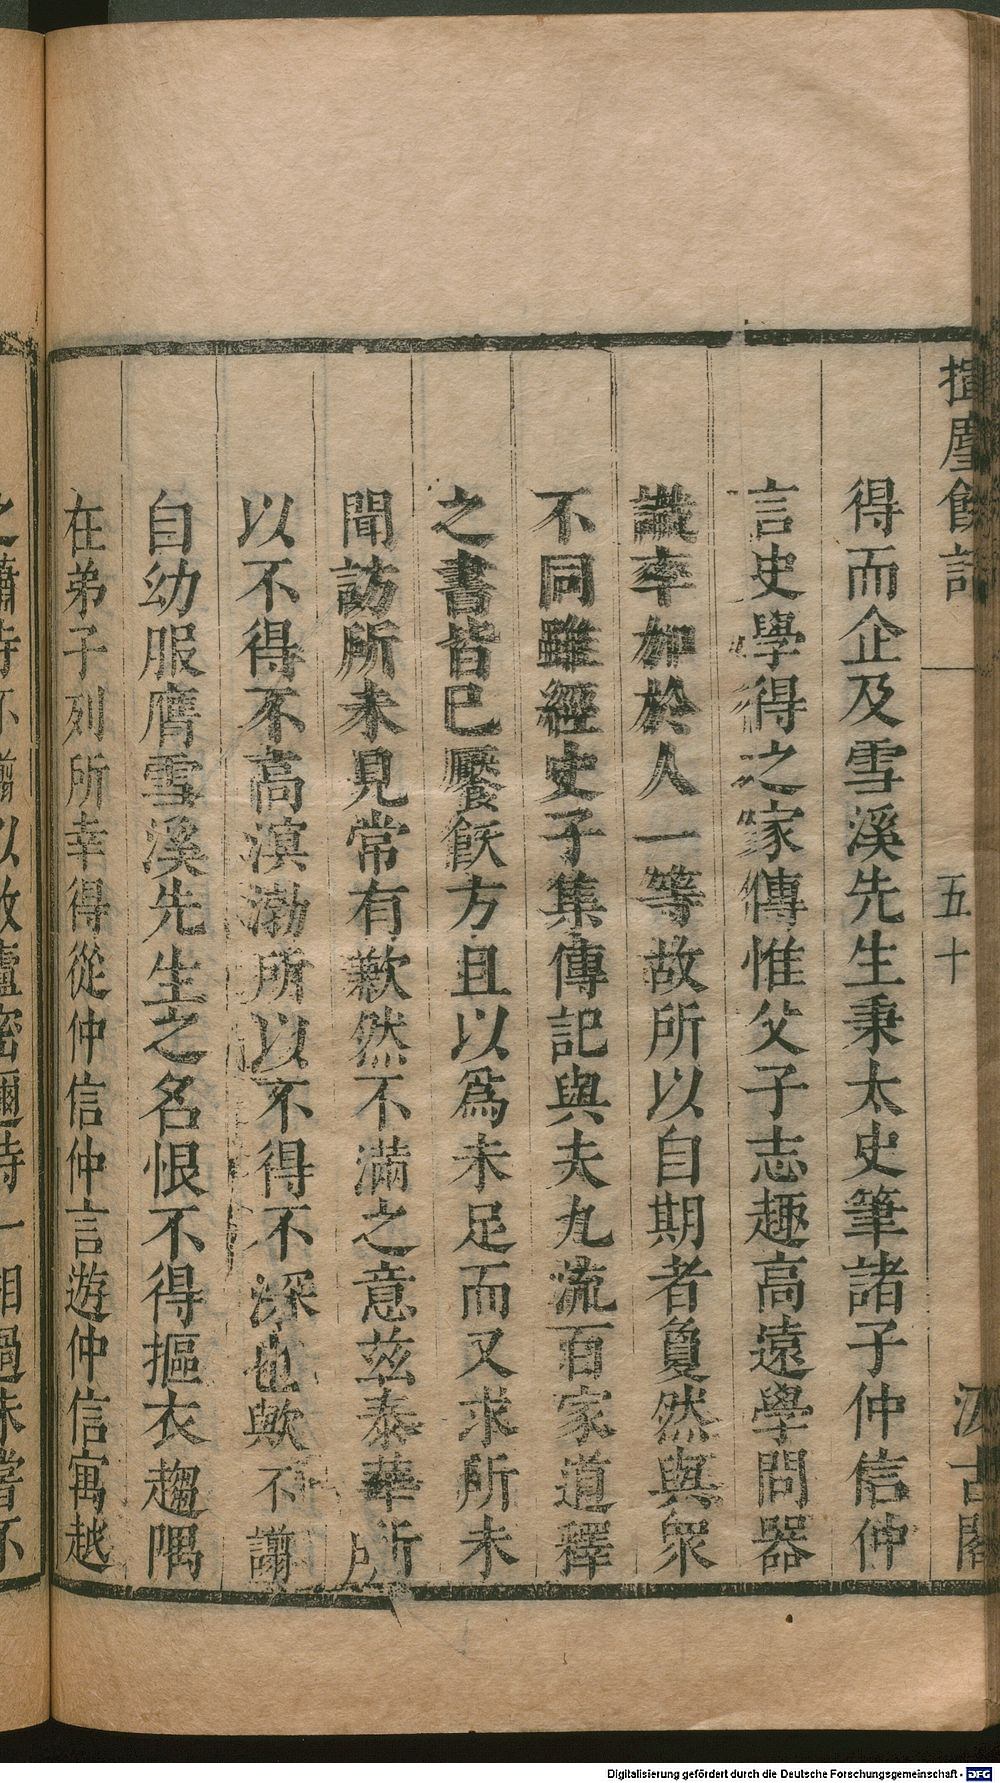 揮麈餘話
五十
汲古閣
得而企及雪溪先生秉太史筆諸子仲信仲
言史學得之家傳惟父子志趣高遠學問器
識率加於人一等故所以自期者夐然與衆
不同雖經史子集傳記與夫九流百家道釋
之書皆已饜飫方且以爲未足而又求所未
聞訪所未見常有歉然不滿之意兹泰華所
以不得不高溟渤所以不得不深也歟不譾
自幼服膺雪溪先生之名恨不得摳衣趨隅
在弟子列所幸得從仲信仲言遊仲信寓越
Digitalisierung gefördert durch die Deutsche Forschungsgemeinschaft - DFG